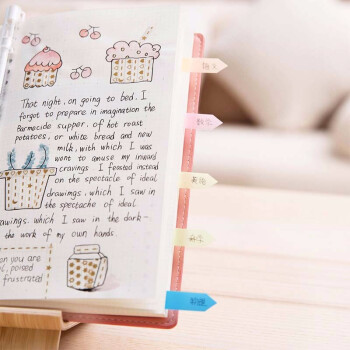 That night, on going to bed, I
forgot to prepare in imagination the
Barmecide supper, of hot roast
potatoes, or white bread and new
milk, with which I was
wont to amuse my inward
cravings. I feasted instead
on the spectacle of ideal
drawings, which I saw in
the spectacle of ideal
awings, which I saw in the dark-
the work of my own hands.
on you are
l, poised
frustrated
语文
数学
英语